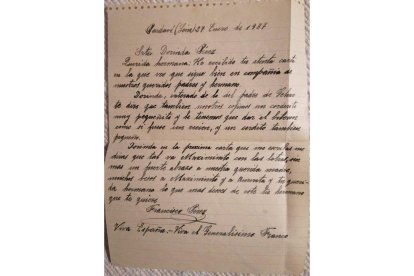 Pardavé (León) 27 Enero de 1937
Srta. Dorinda Pérez
Querida hermana: He recibido tu atenta carta
en la que veo que sigue bien en compañia de
nuestros queridos padres y hermano.
Dorinda, enterado de lo del padre de
te dire que tambien nosotros un cordero
muy pequeñito y le tenemos que dar el biberon
como si fuese un nuevo, y un cerdito tambien
pequeño.
Dorinda en la proxima carta que me escribas me
dices que tal va con las cabras, sin
mas un fuerte abrazo a nuestra querida madre,
muchos besos a y a y tu queri
da hermana lo que mas desees de este tu hermano
que te quiere.
Francisco Pérez
Viva España.- Viva el Generalisimo Franco